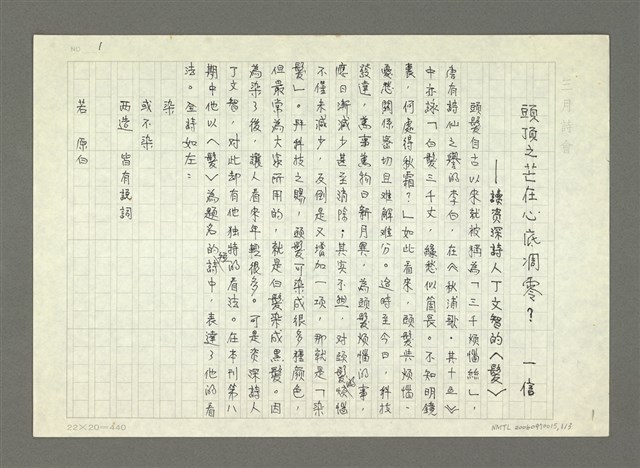 NO. 1
三月詩會
頭頂之芒在心底凋零？ 一信
——讀資深詩人丁文智的〈髮〉
頭髮自古以來就被稱為「三千煩惱絲」，
唐有詩仙之譽的李白，在《秋浦歌·其十五》
中亦詠「白髮三千丈，緣愁似箇長。不知明鏡
裏，何處得秋霜？」如此看來，頭髮與煩惱、
憂愁關係密切且難解難分。迨時至今日，科技
發達，萬事萬物日新月異，為頭髮煩惱的事，
應日漸減少甚至消除；其實不然，對頭髮的煩惱
不僅未減少，反倒是又增加一項，那就是「染
髮」。拜科技之賜，頭髮可染成很多種顏色，
但最常為大家所用的，就是白髮染成黑髮。因
為染了後，讓人看來年輕很多。可是資深詩人
丁文智，對此卻有他獨特的看法。在本刊第八
期中他以〈髮〉為題名的短詩中，表達了他的看
法。全詩如左：
染
或不染
兩造 皆有說詞
若 原白
22×20=440
1
NMTL 20060970015, 1/3